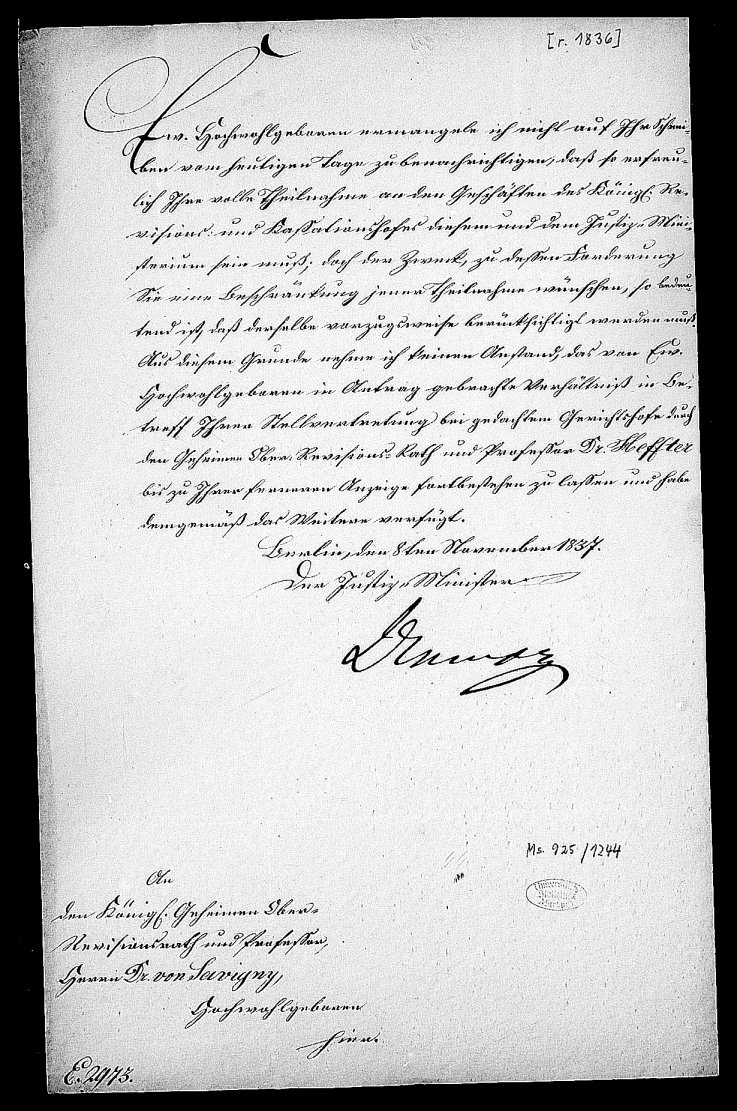 [r. 1836]
Ew. Hochwohlgeboren ermangele ich nicht auf Ihr Schrei-
ben vom heutigen Tage zu benachrichtigen, daß so erfreu-
lich Ihre volle Theilnahme an den Geschäften des Königl. Re-
visions- und Kassationshofes diesem und dem Justiz-Mini-
sterium sein muß, doch der Zweck, zu dessen Förderung
Sie eine Beschränkung jener Theilnahme wünschen, so bedeu-
tend ist, daß derselbe vorzugsweise berücksichtigt werden muß.
Aus diesem Grunde nehme ich keinen Anstand, das von Ew.
Hochwohlgeboren in Antrag gebrachte Verhältniß in Be-
treff Ihrer Stellvertretung bei gedachtem Gerichtshofe durch
den Geheimen Ober-Revisions-Rath und Professor Dr. Heffter
bis zu Ihrer ferneren Anzeige fortbestehen zu lassen und habe
demgemäß das Weitere verfügt.
Berlin, den 8ten November 1837.
Der Justiz-Minister
Ms. 925/1244
An
den Königl. Geheimen Ober-
Revisionsrath und Professor,
Herrn Dr. von Savigny,
Hochwohlgeboren
hier.
E. 2973.